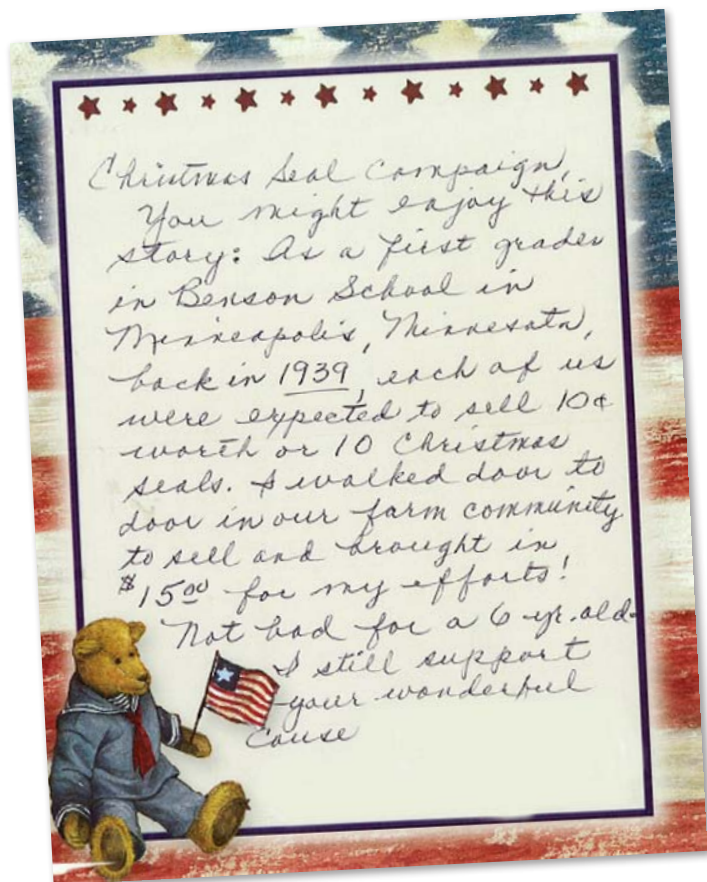 Christmas Seal Campaign,
You might enjoy this
story: As a first grader
in Benson School in
Minneapolis, Minnesota,
back in 1939, each of us
were expected to sell 10¢
worth or 10 Christmas
seals. I walked door to
door in our farm community
to sell and brought in
$15.00 for my efforts!
Not bad for a 6 yr. old.
I still support
your wonderful
cause